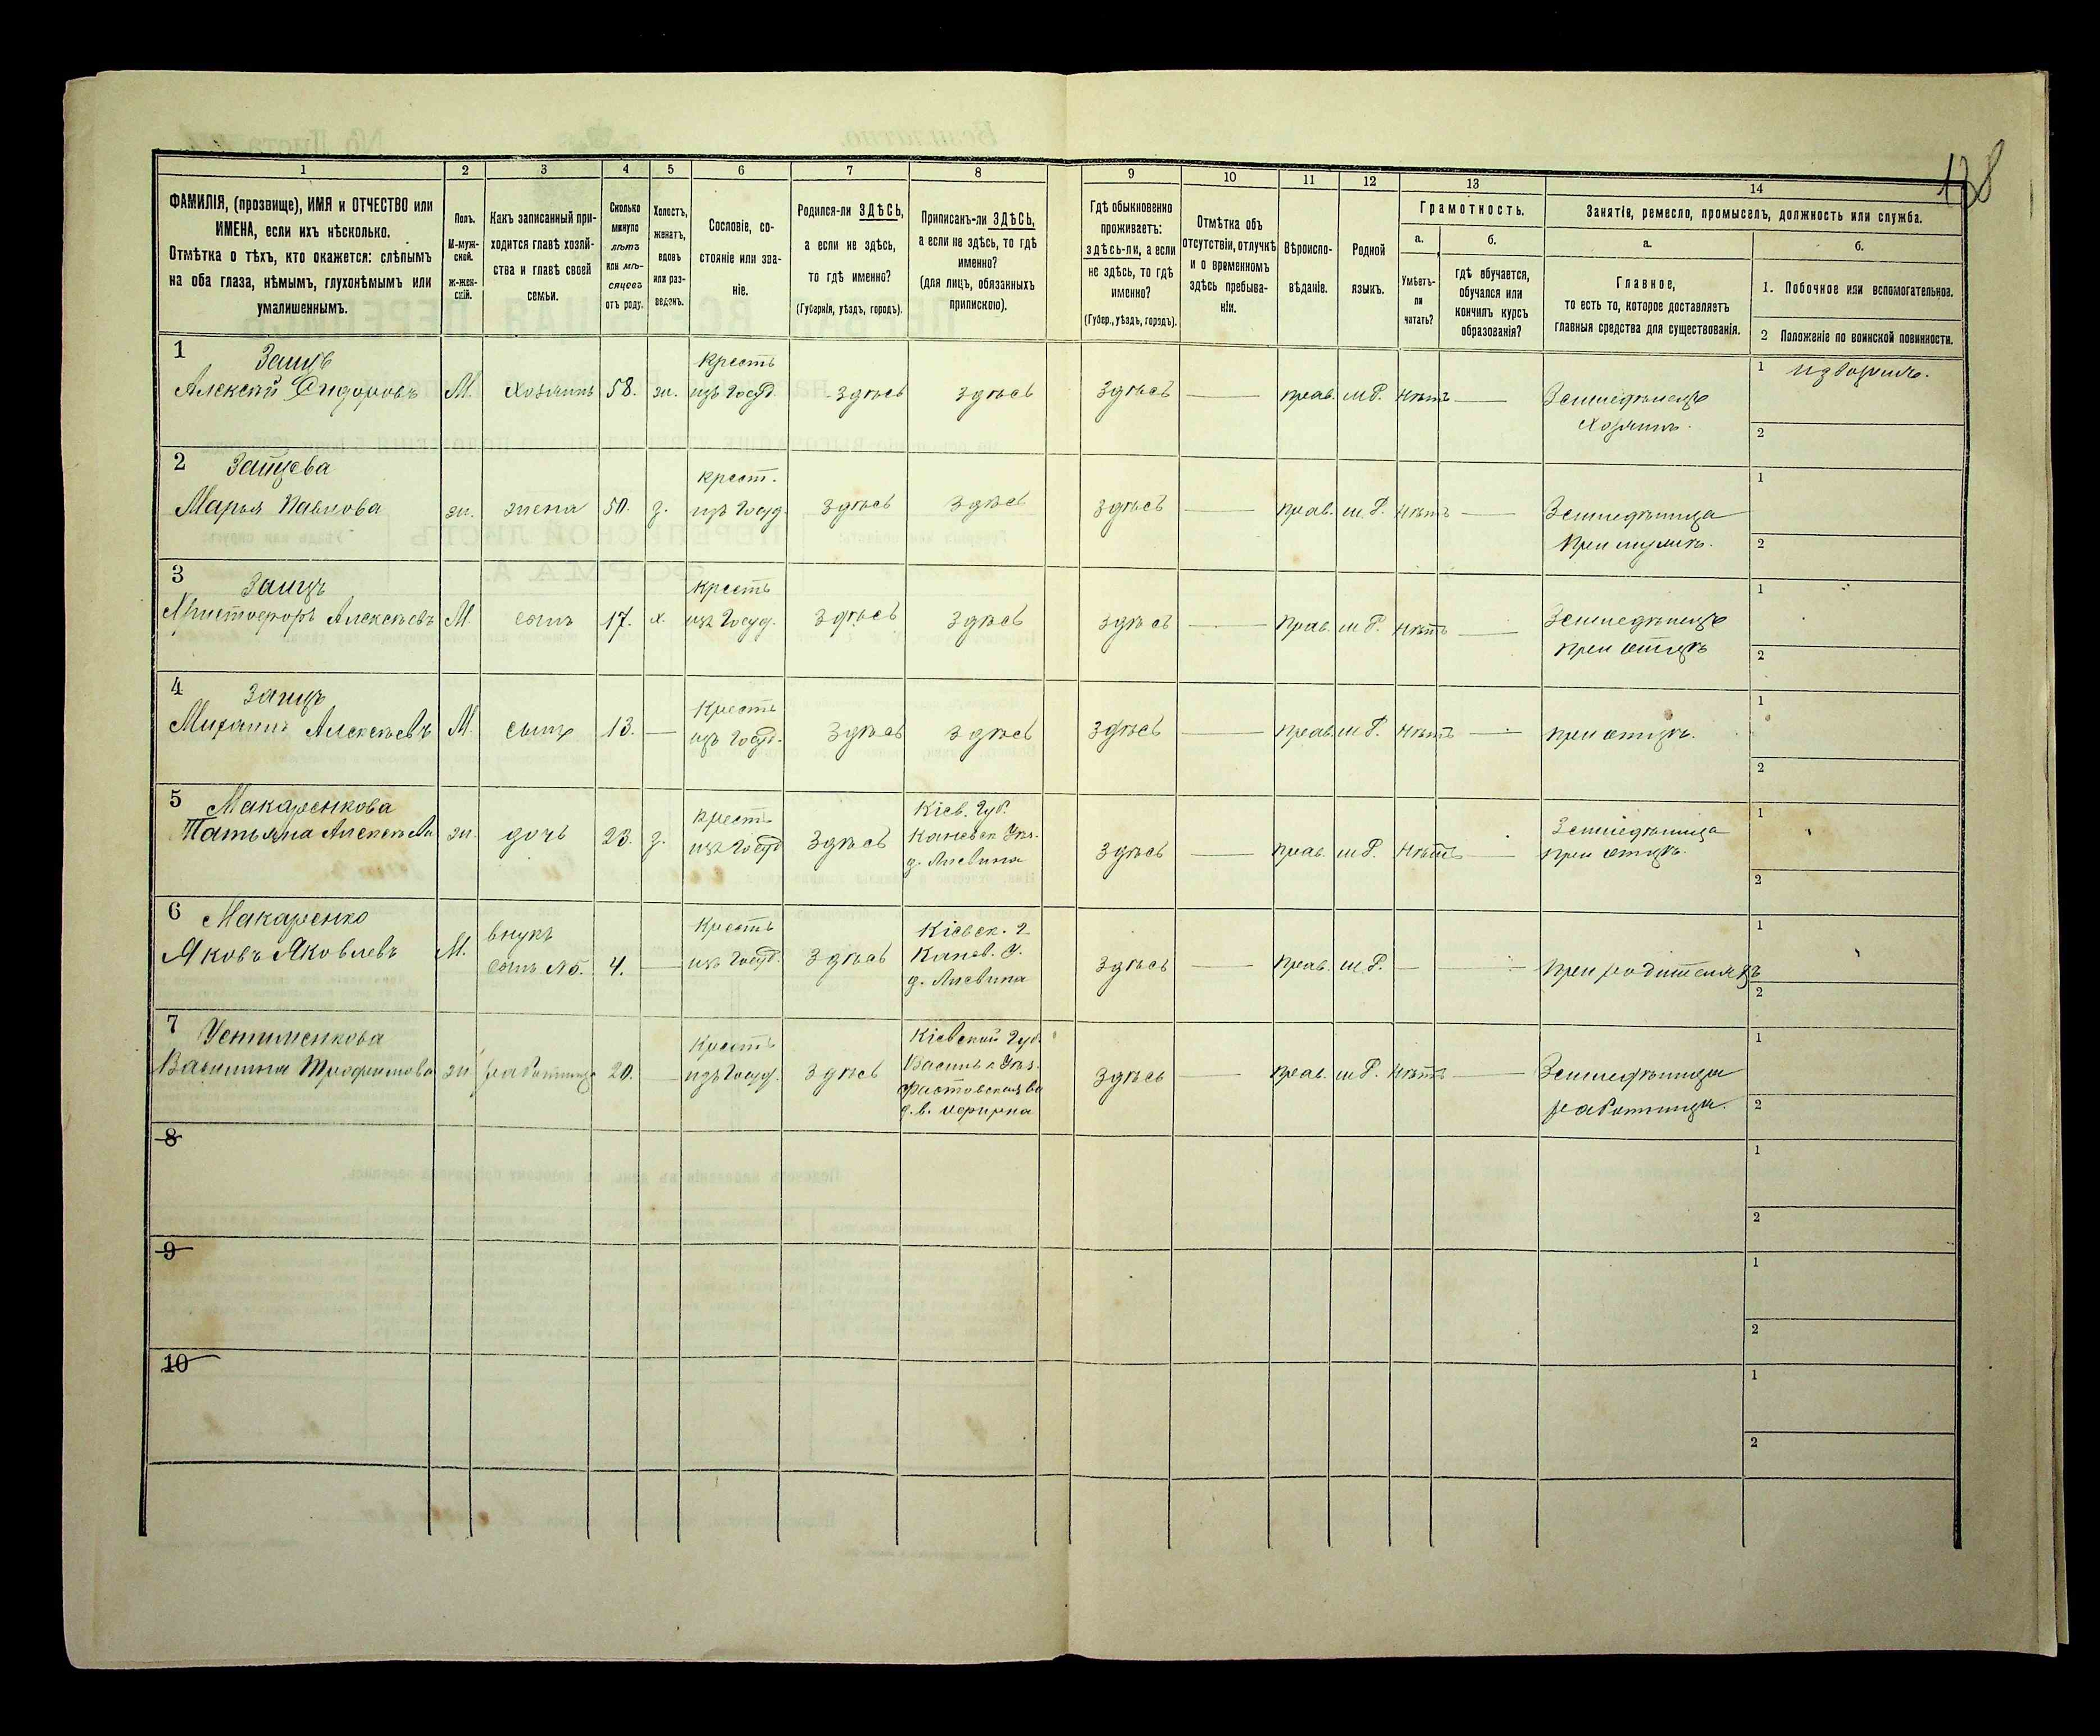 138
1 2 3 4 5 6 7 8 9 10 11 12 13 14
ФАМИЛІЯ, (прозвище), ИМЯ и ОТЧЕСТВО или ИМЕНА, если ихъ нѣсколько.
Отмѣтка о тѣхъ, кто окажется: слѣпымъ на оба глаза, нѣмымъ, глухонѣмымъ или умалишеннымъ.
Полъ. М-мужской. Ж-женскій.
Какъ записанный приходится главѣ хозяйства и главѣ своей семьи.
Сколько минуло лѣтъ или мѣсяцевъ отъ роду.
Холостъ, женатъ, вдовъ или разведенъ.
Сословіе, состояніе или званіе.
Родился-ли ЗДѢСЬ, а если не здѣсь, то гдѣ именно? (Губернія, уѣздъ, городъ).
Приписанъ-ли ЗДѢСЬ, а если не здѣсь, то гдѣ именно? (для лицъ, обязанныхъ припискою).
Гдѣ обыкновенно проживаетъ: здѣсь-ли, а если не здѣсь, то гдѣ именно? (Губер., уѣздъ, городъ).
Отмѣтка объ отсутствіи, отлучкѣ и о временномъ здѣсь пребываніи.
Вѣроисповѣданіе.
Родной языкъ.
Грамотность.
а. Умѣетъ-ли читать?
б. гдѣ обучается, обучался или кончилъ курсъ образованія?
Занятіе, ремесло, промыселъ, должность или служба.
а. Главное, то есть то, которое доставляетъ главныя средства для существованія.
б.
1. Побочное или вспомогательное.
2 Положеніе по воинской повинности.
1 Заиць
Алексѣй Сидоровъ М. хозяинъ 58. ж. крестъ изъ Госуд. здѣсь здѣсь здѣсь — прав. м.Р. нѣтъ — Земледѣлецъ хозяинъ. 1 извозъ. 2
2 Зайцева
Марья Павлова ж. жена 50. з. крест. изъ Госуд. здѣсь здѣсь здѣсь — прав. м.Р. нѣтъ — Земледѣлица при мужѣ. 1 2
3 Заицъ
Христофоръ Алексѣевъ М. сынъ 17. х. крестъ изъ Госуд. здѣсь здѣсь здѣсь — прав. м.Р. нѣтъ — Земледѣлецъ при отцѣ 1 2
4 Заицъ
Михаилъ Алексѣевъ М. сынъ 13. — Крестъ изъ Госуд. здѣсь здѣсь здѣсь — прав. м.Р. нѣтъ — при отцѣ. 1 2
5 Макаренкова
Татьяна Алексѣева ж. дочь 23. з. крестъ изъ Госуд здѣсь Кіев. Губ. Каневск Уѣз. д. здѣсь — прав. м.Р. нѣтъ — Земледѣлица при отцѣ. 1 2
6 Макаренко
Яковъ Яковлевъ М. внукъ сынъ №5. 4. — Крестъ изъ Госуд. здѣсь Кіевск. г. Канев. У. д. здѣсь — прав. м.Р. — — при родителяхъ 1 2
7 Устименкова
Василина Трофимова ж. работница 20. — Крестъ изъ Госуд. здѣсь Кіевской Губ. Васильк Уѣз. Фастовской здѣсь — прав. м.Р. нѣтъ — Земледѣлица работница. 1 2
8 1 2
9 1 2
10 1 2